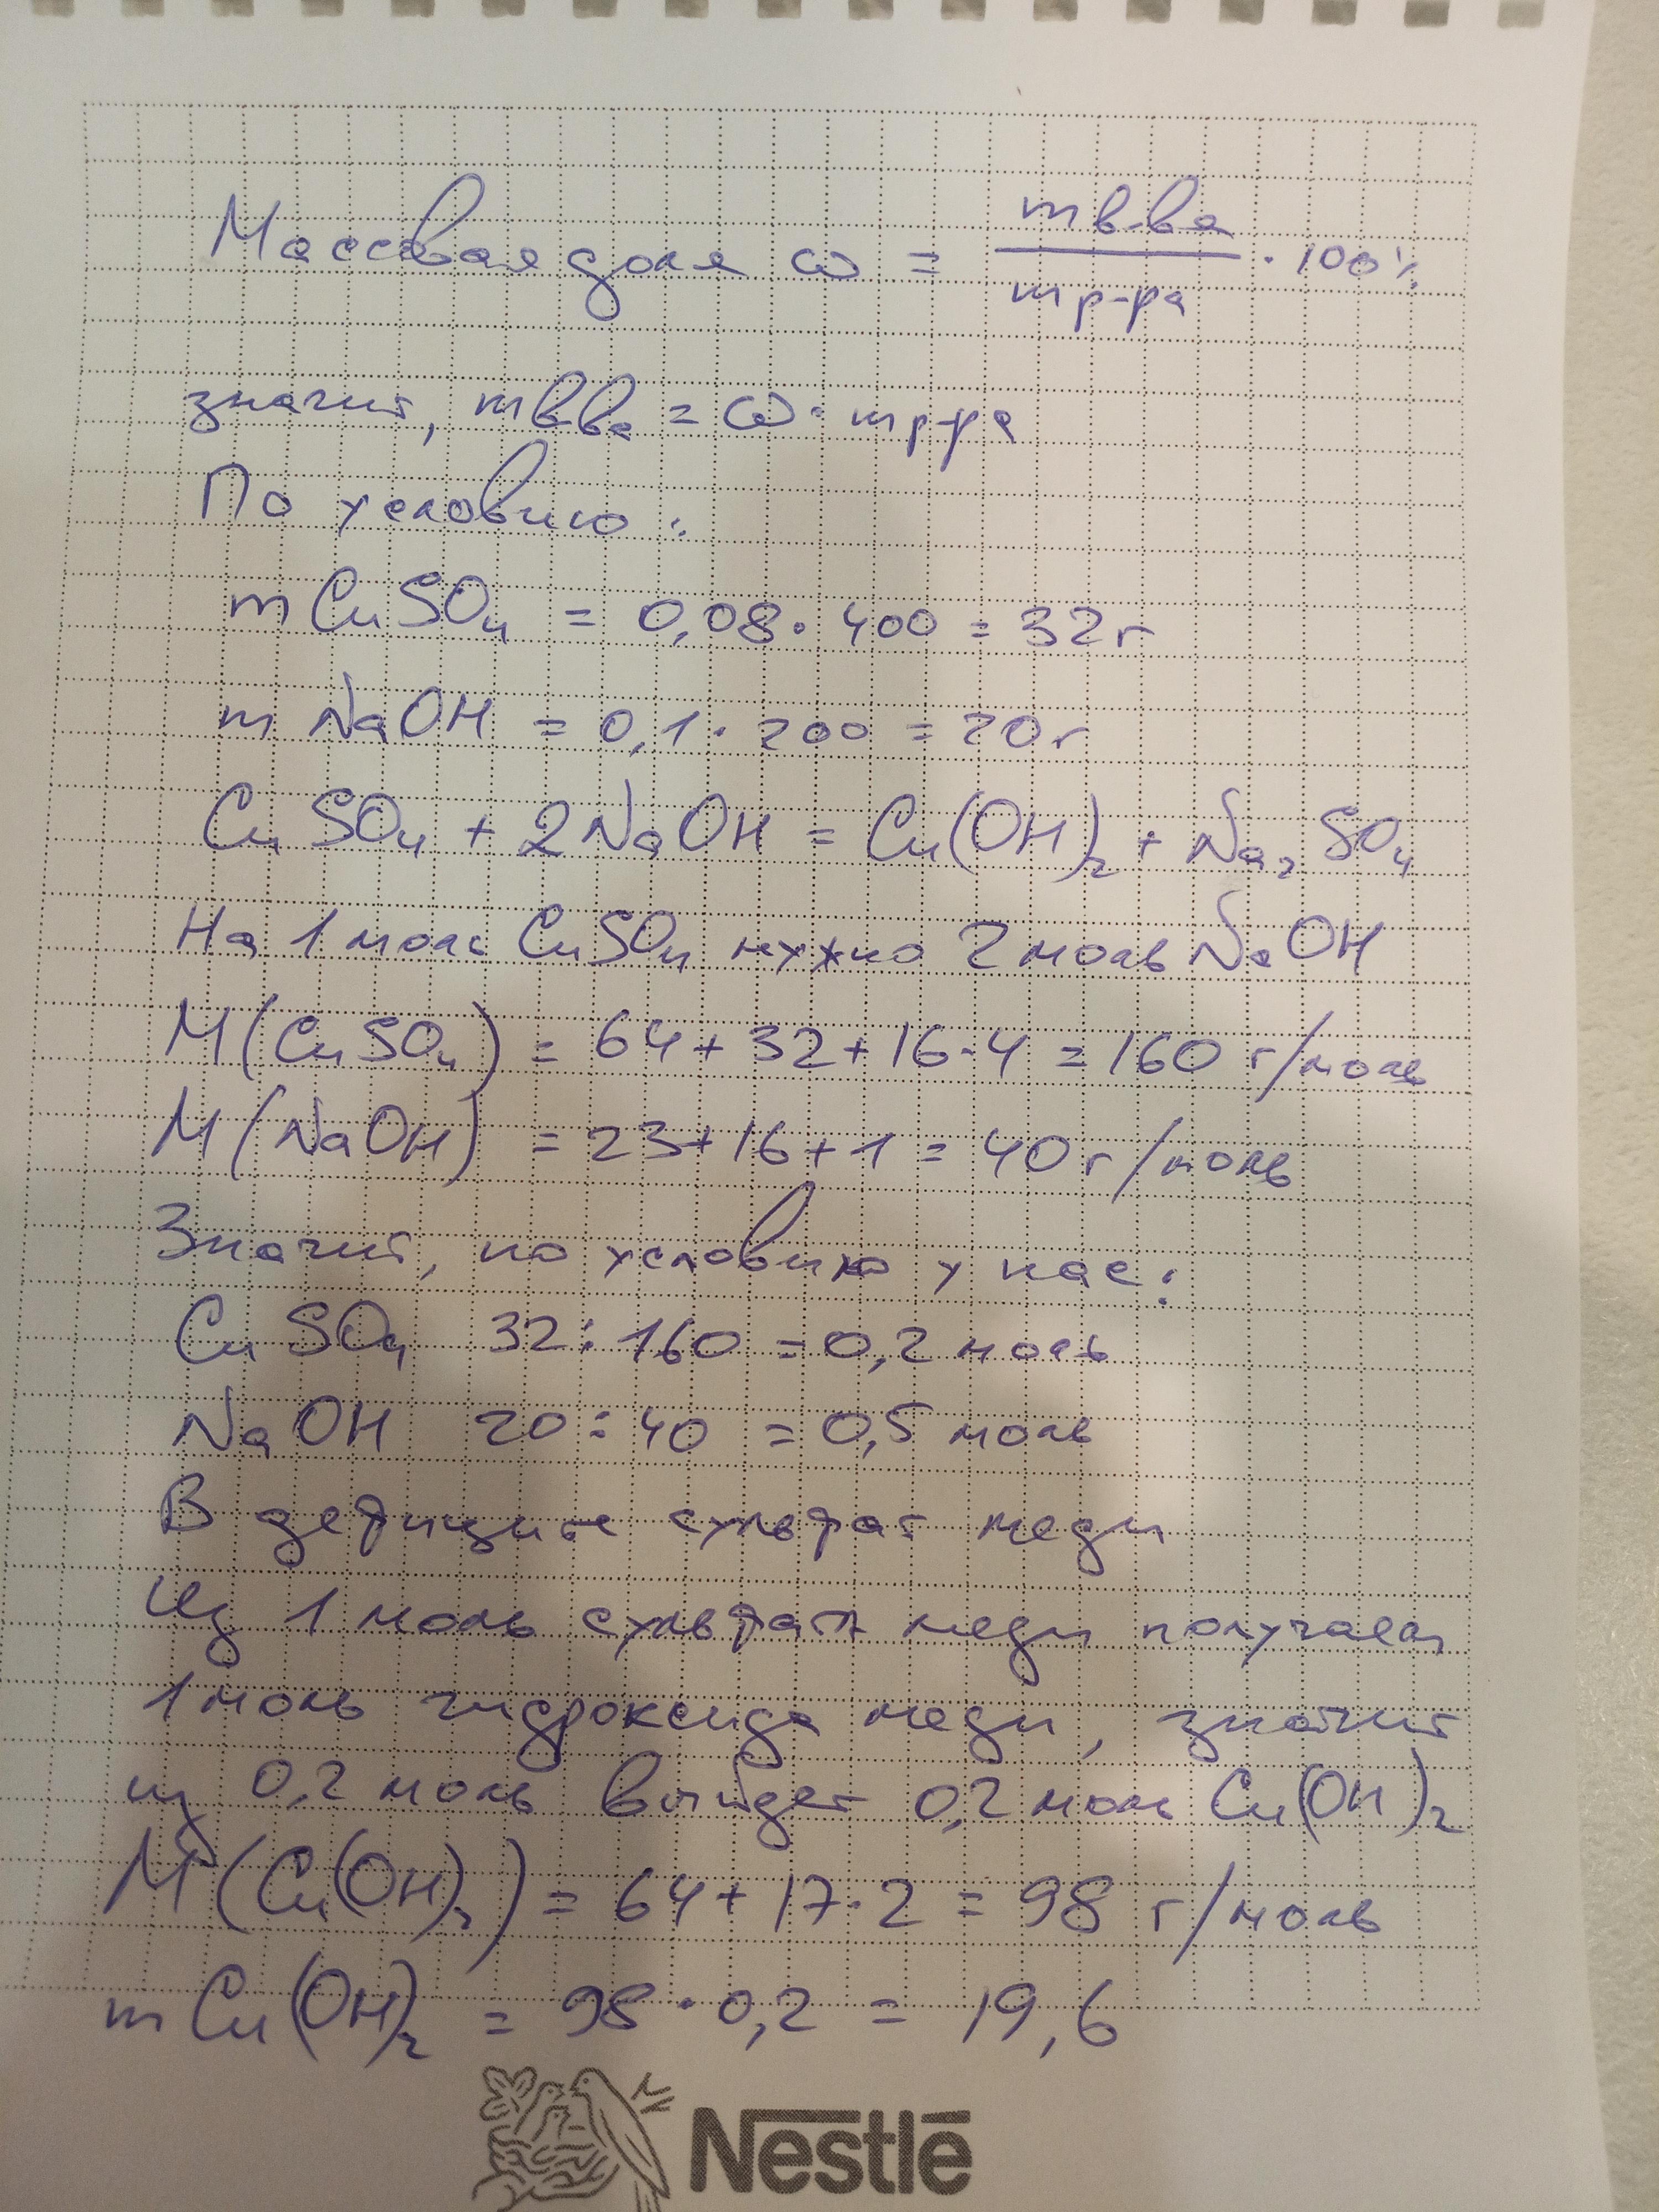 Массовая доля ω = m в-ва / m р-ра · 100%
значит, m в-ва = ω · m р-ра
По условию:
m CuSO₄ = 0,08 · 400 = 32 г
m NaOH = 0,1 · 200 = 20 г
CuSO₄ + 2NaOH = Cu(OH)₂ + Na₂SO₄
На 1 моль CuSO₄ нужно 2 моль NaOH
M(CuSO₄) = 64 + 32 + 16·4 = 160 г/моль
M(NaOH) = 23 + 16 + 1 = 40 г/моль
Значит, по условию у нас:
CuSO₄ 32 : 160 = 0,2 моль
NaOH 20 : 40 = 0,5 моль
В дефиците сульфат меди
Из 1 моль сульфата меди получаем
1 моль гидроксида меди, значит
из 0,2 моль выйдет 0,2 моль Cu(OH)₂
M(Cu(OH)₂) = 64 + 17·2 = 98 г/моль
m Cu(OH)₂ = 98 · 0,2 = 19,6
Nestlē